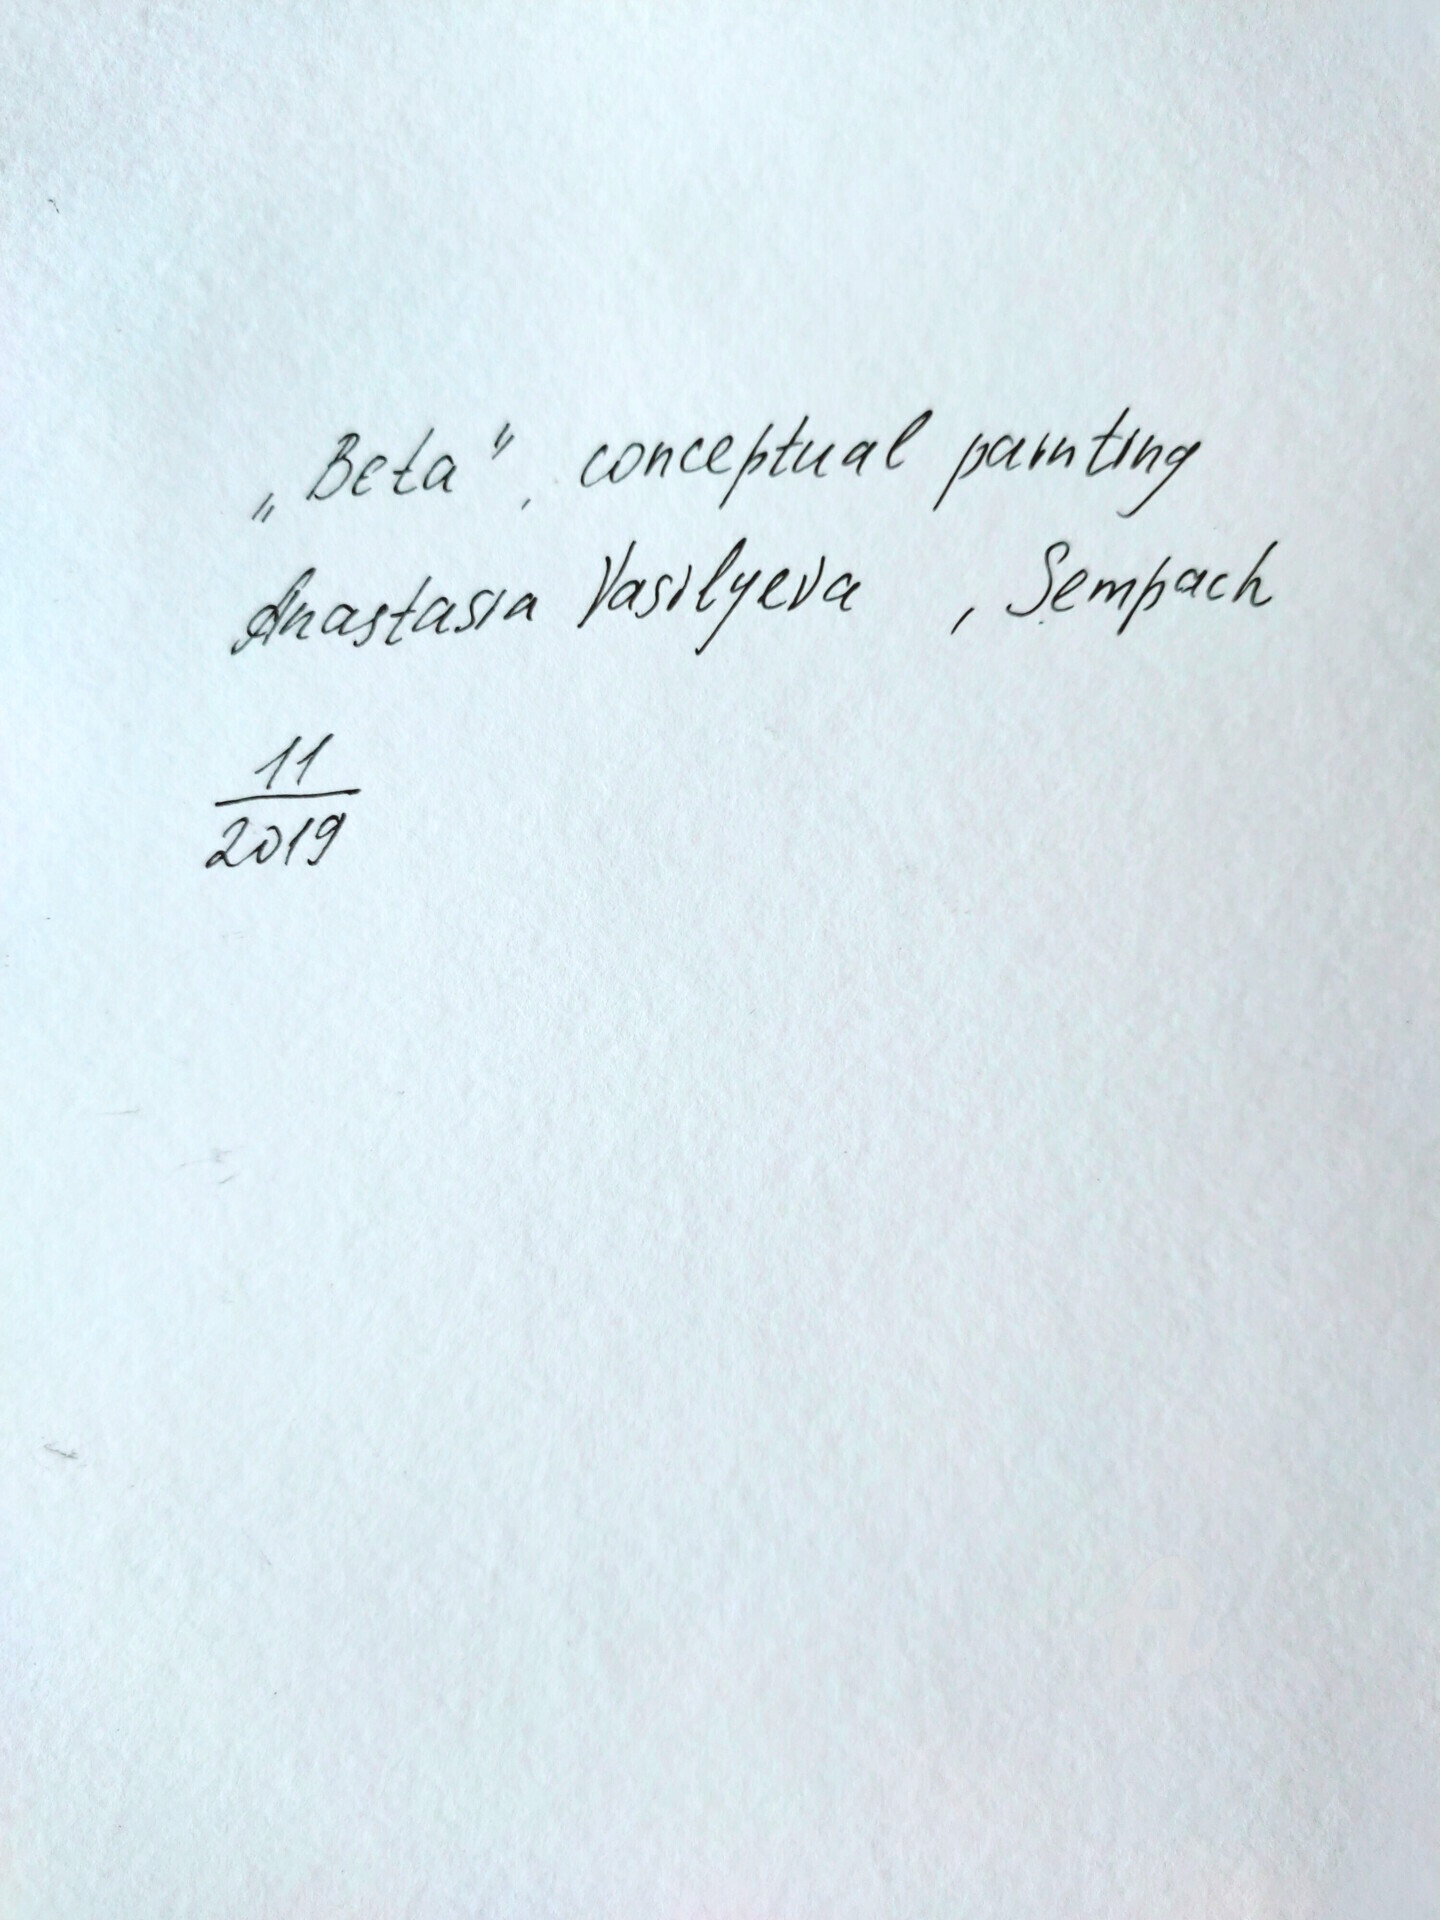 „Beta“, conceptual painting
Anastasia Vasilyeva , Sempach
11
2019